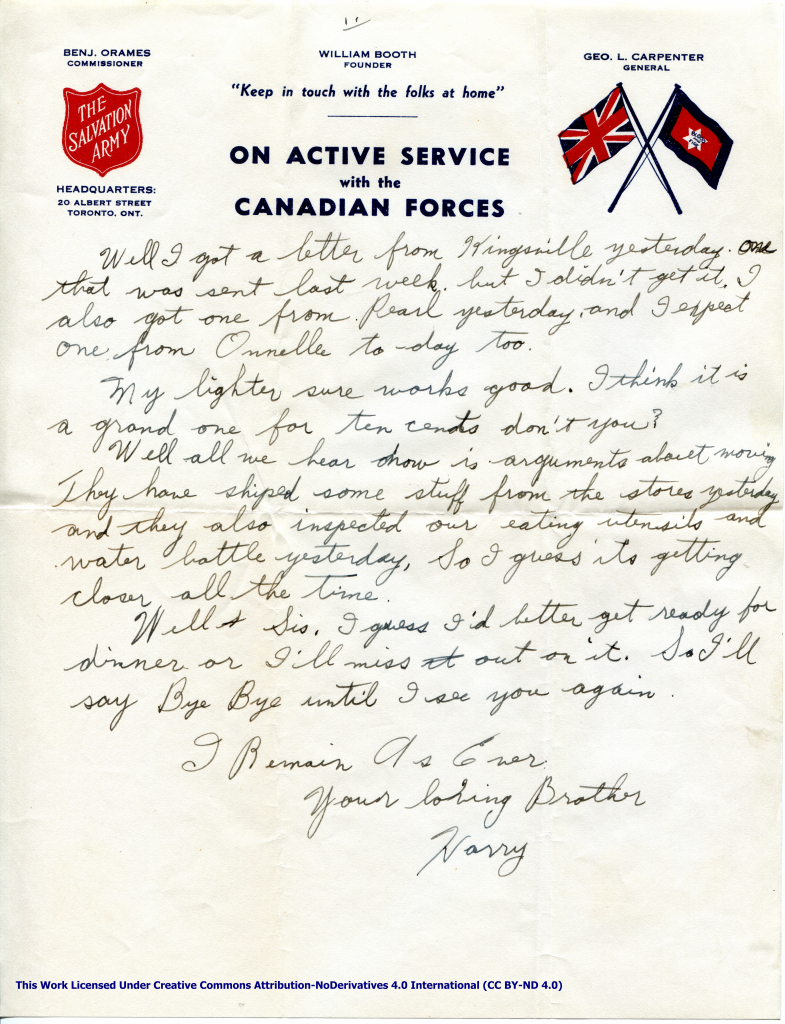 BENJ. ORAMES
COMMISSIONER
WILLIAM BOOTH
FOUNDER
GEO. L. CARPENTER
GENERAL
"Keep in touch with the folks at home"
THE
SALVATION
ARMY
ON ACTIVE SERVICE
with the
CANADIAN FORCES
HEADQUARTERS:
20 ALBERT STREET
TORONTO, ONT.
Well I got a letter from Kingsville yesterday. one
that was sent last week. but I didn't get it. I
also got one from Pearl yesterday, and I expect
one from Onnellee to-day too.
My lighter sure works good. I think it is
a grand one for ten cents don't you?
Well all we hear now is arguments about moving
They have shiped some stuff from the stores yesterday
and they also inspected our eating utensils and
water bottle yesterday, So I guess its getting
closer all the time.
Well Sis. I guess I'd better get ready for
dinner or I'll miss out on it. So I'll
say Bye Bye until I see you again.
I Remain As Ever
Your loving Brother
Harry
This Work Licensed Under Creative Commons Attribution-NoDerivatives 4.0 International (CC BY-ND 4.0)